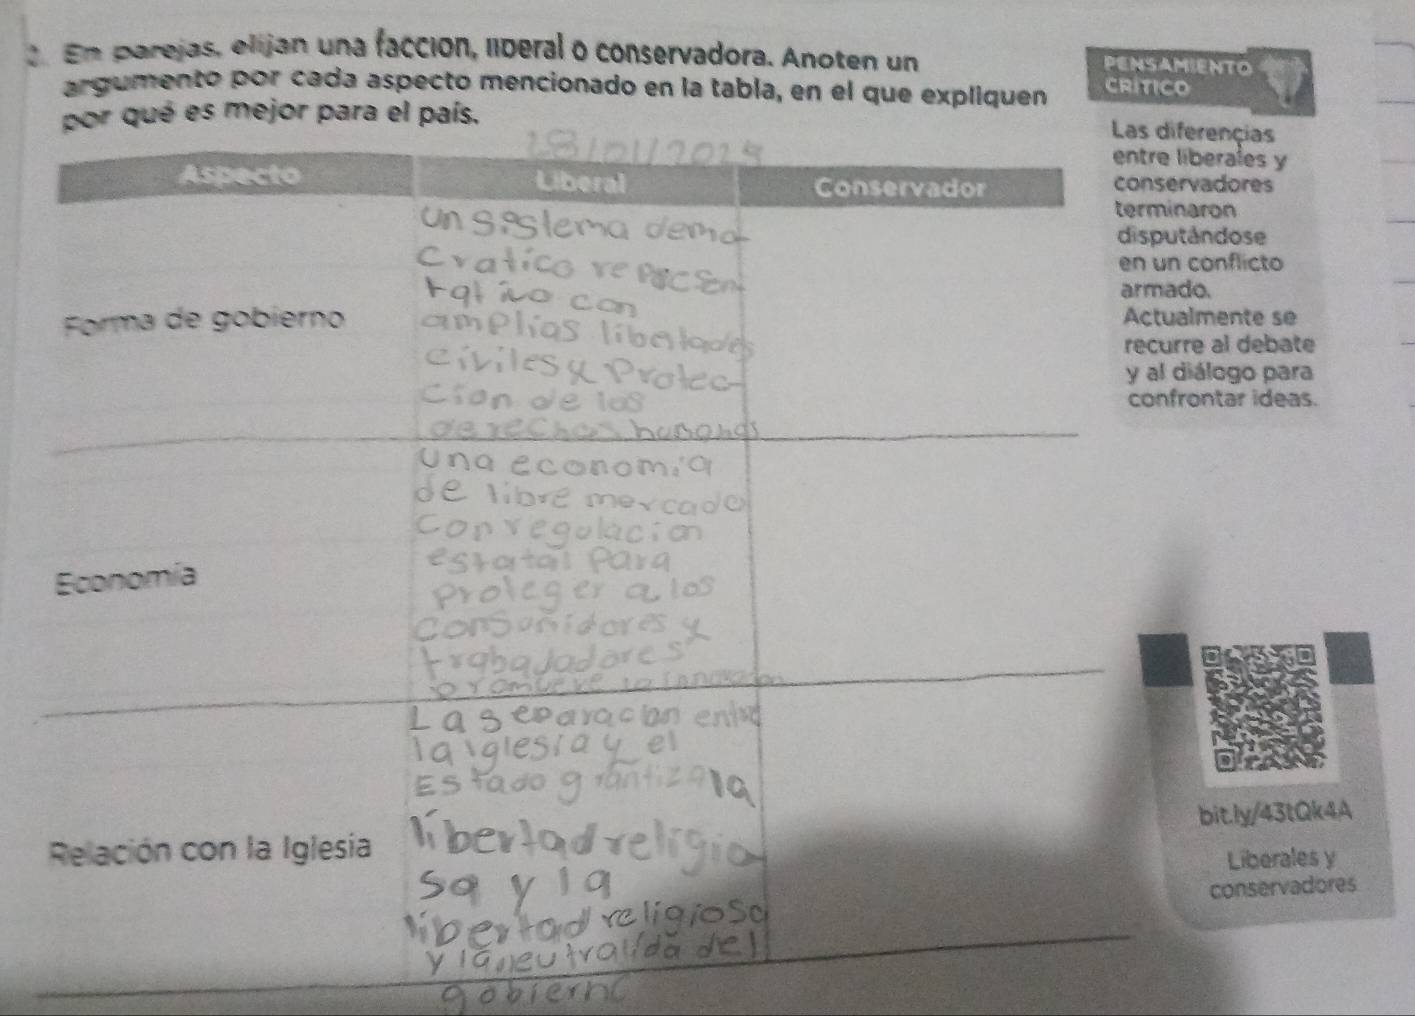 2. En parejas, elijan una facción, liberal o conservadora. Anoten un
argumento por cada aspecto mencionado en la tabla, en el que expliquen
por qué es mejor para el país.
Aspecto
Liberal
Conservador
Forma de gobierno
un sistema demo
cratico represen
tativo con
amplias libertades
civiles y Protec
cion de los
derechos humanos
Economía
Una economia
de libre mercado
con regulacion
estatal para
proteger a los
consumidores y
trabajadores
promueve la
Relación con la Iglesia
La separacion entre
la iglesia y el
Estado grantiza la
libertad religio
sa y la
libertad religiosa
y la neutralida del
gobierno
PENSAMIENTO
CRÍTICO
Las diferencias
entre liberales y
conservadores
terminaron
disputándose
en un conflicto
armado.
Actualmente se
recurre al debate
y al diálogo para
confrontar ideas.
bit.ly/43tQk4A
Liberales y
conservadores